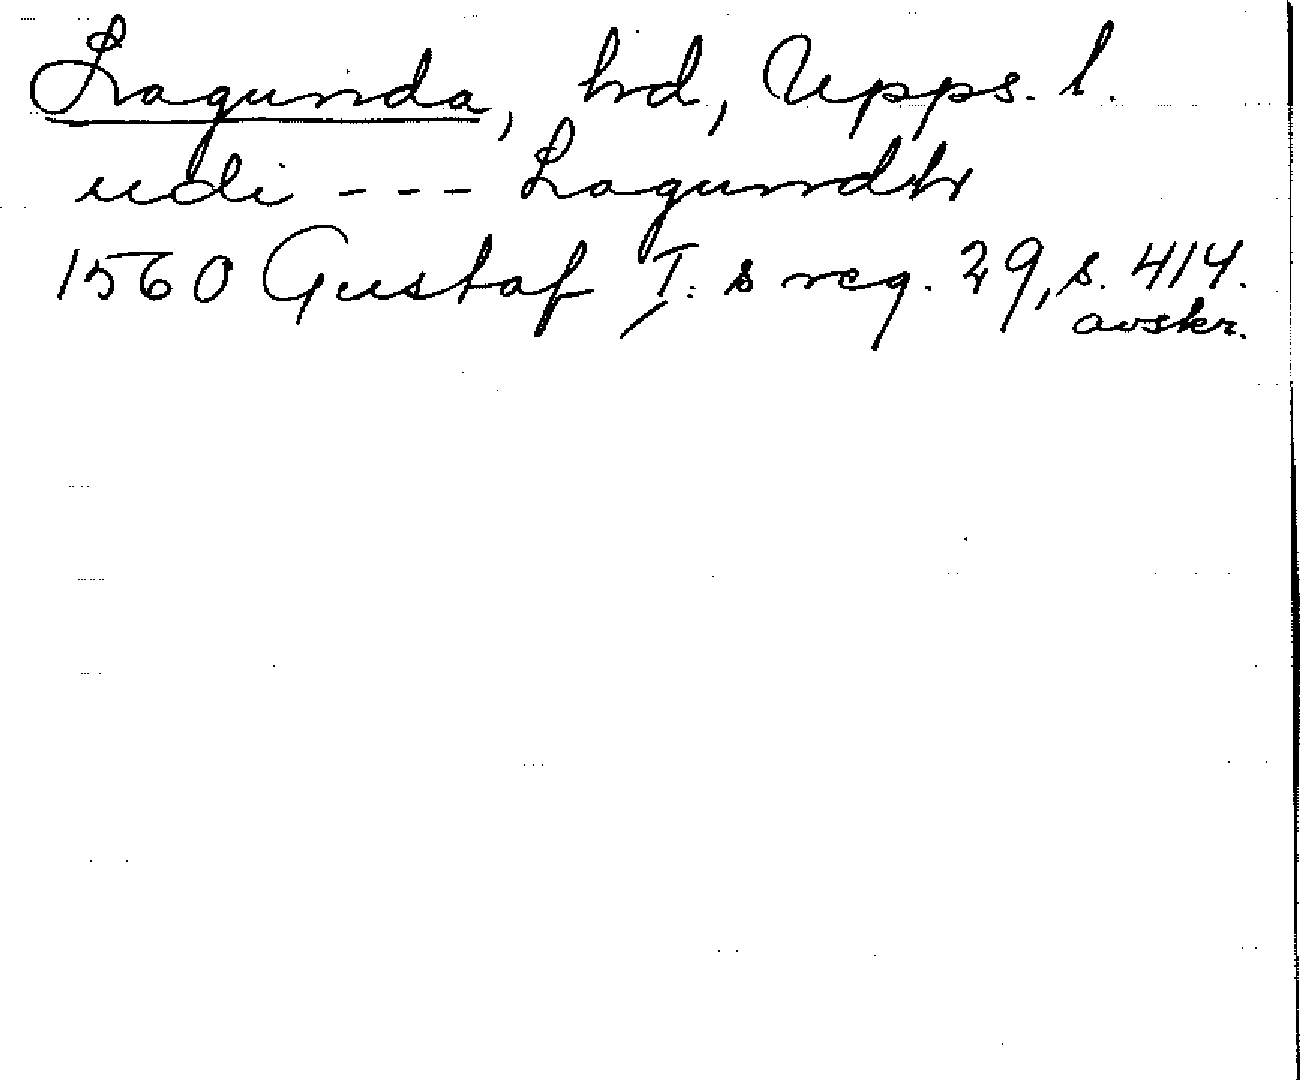 Lagunda, hd, Upps. l.
udi - - - Lagundh
1560 Gustaf I:s reg. 29, s. 414.
avskr.